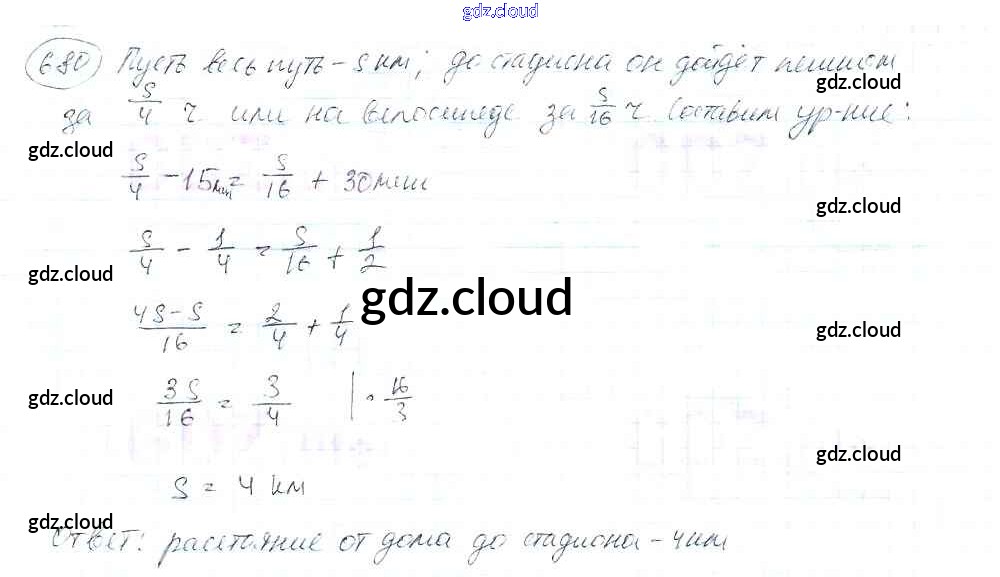 gdz.cloud
680 Пусть весь путь - S км; до стадиона он дойдёт пешком
за S/4 ч или на велосипеде за S/16 ч. Составим ур-ние:
gdz.cloud
S/4 - 15мин = S/16 + 30мин
gdz.cloud
S/4 - 1/4 = S/16 + 1/2
gdz.cloud
gdz.cloud
4S-S/16 = 2/4 + 1/4
gdz.cloud
gdz.cloud
3S/16 = 3/4 | · 16/3
gdz.cloud
S = 4 км
gdz.cloud
Ответ: расстояние от дома до стадиона - 4км